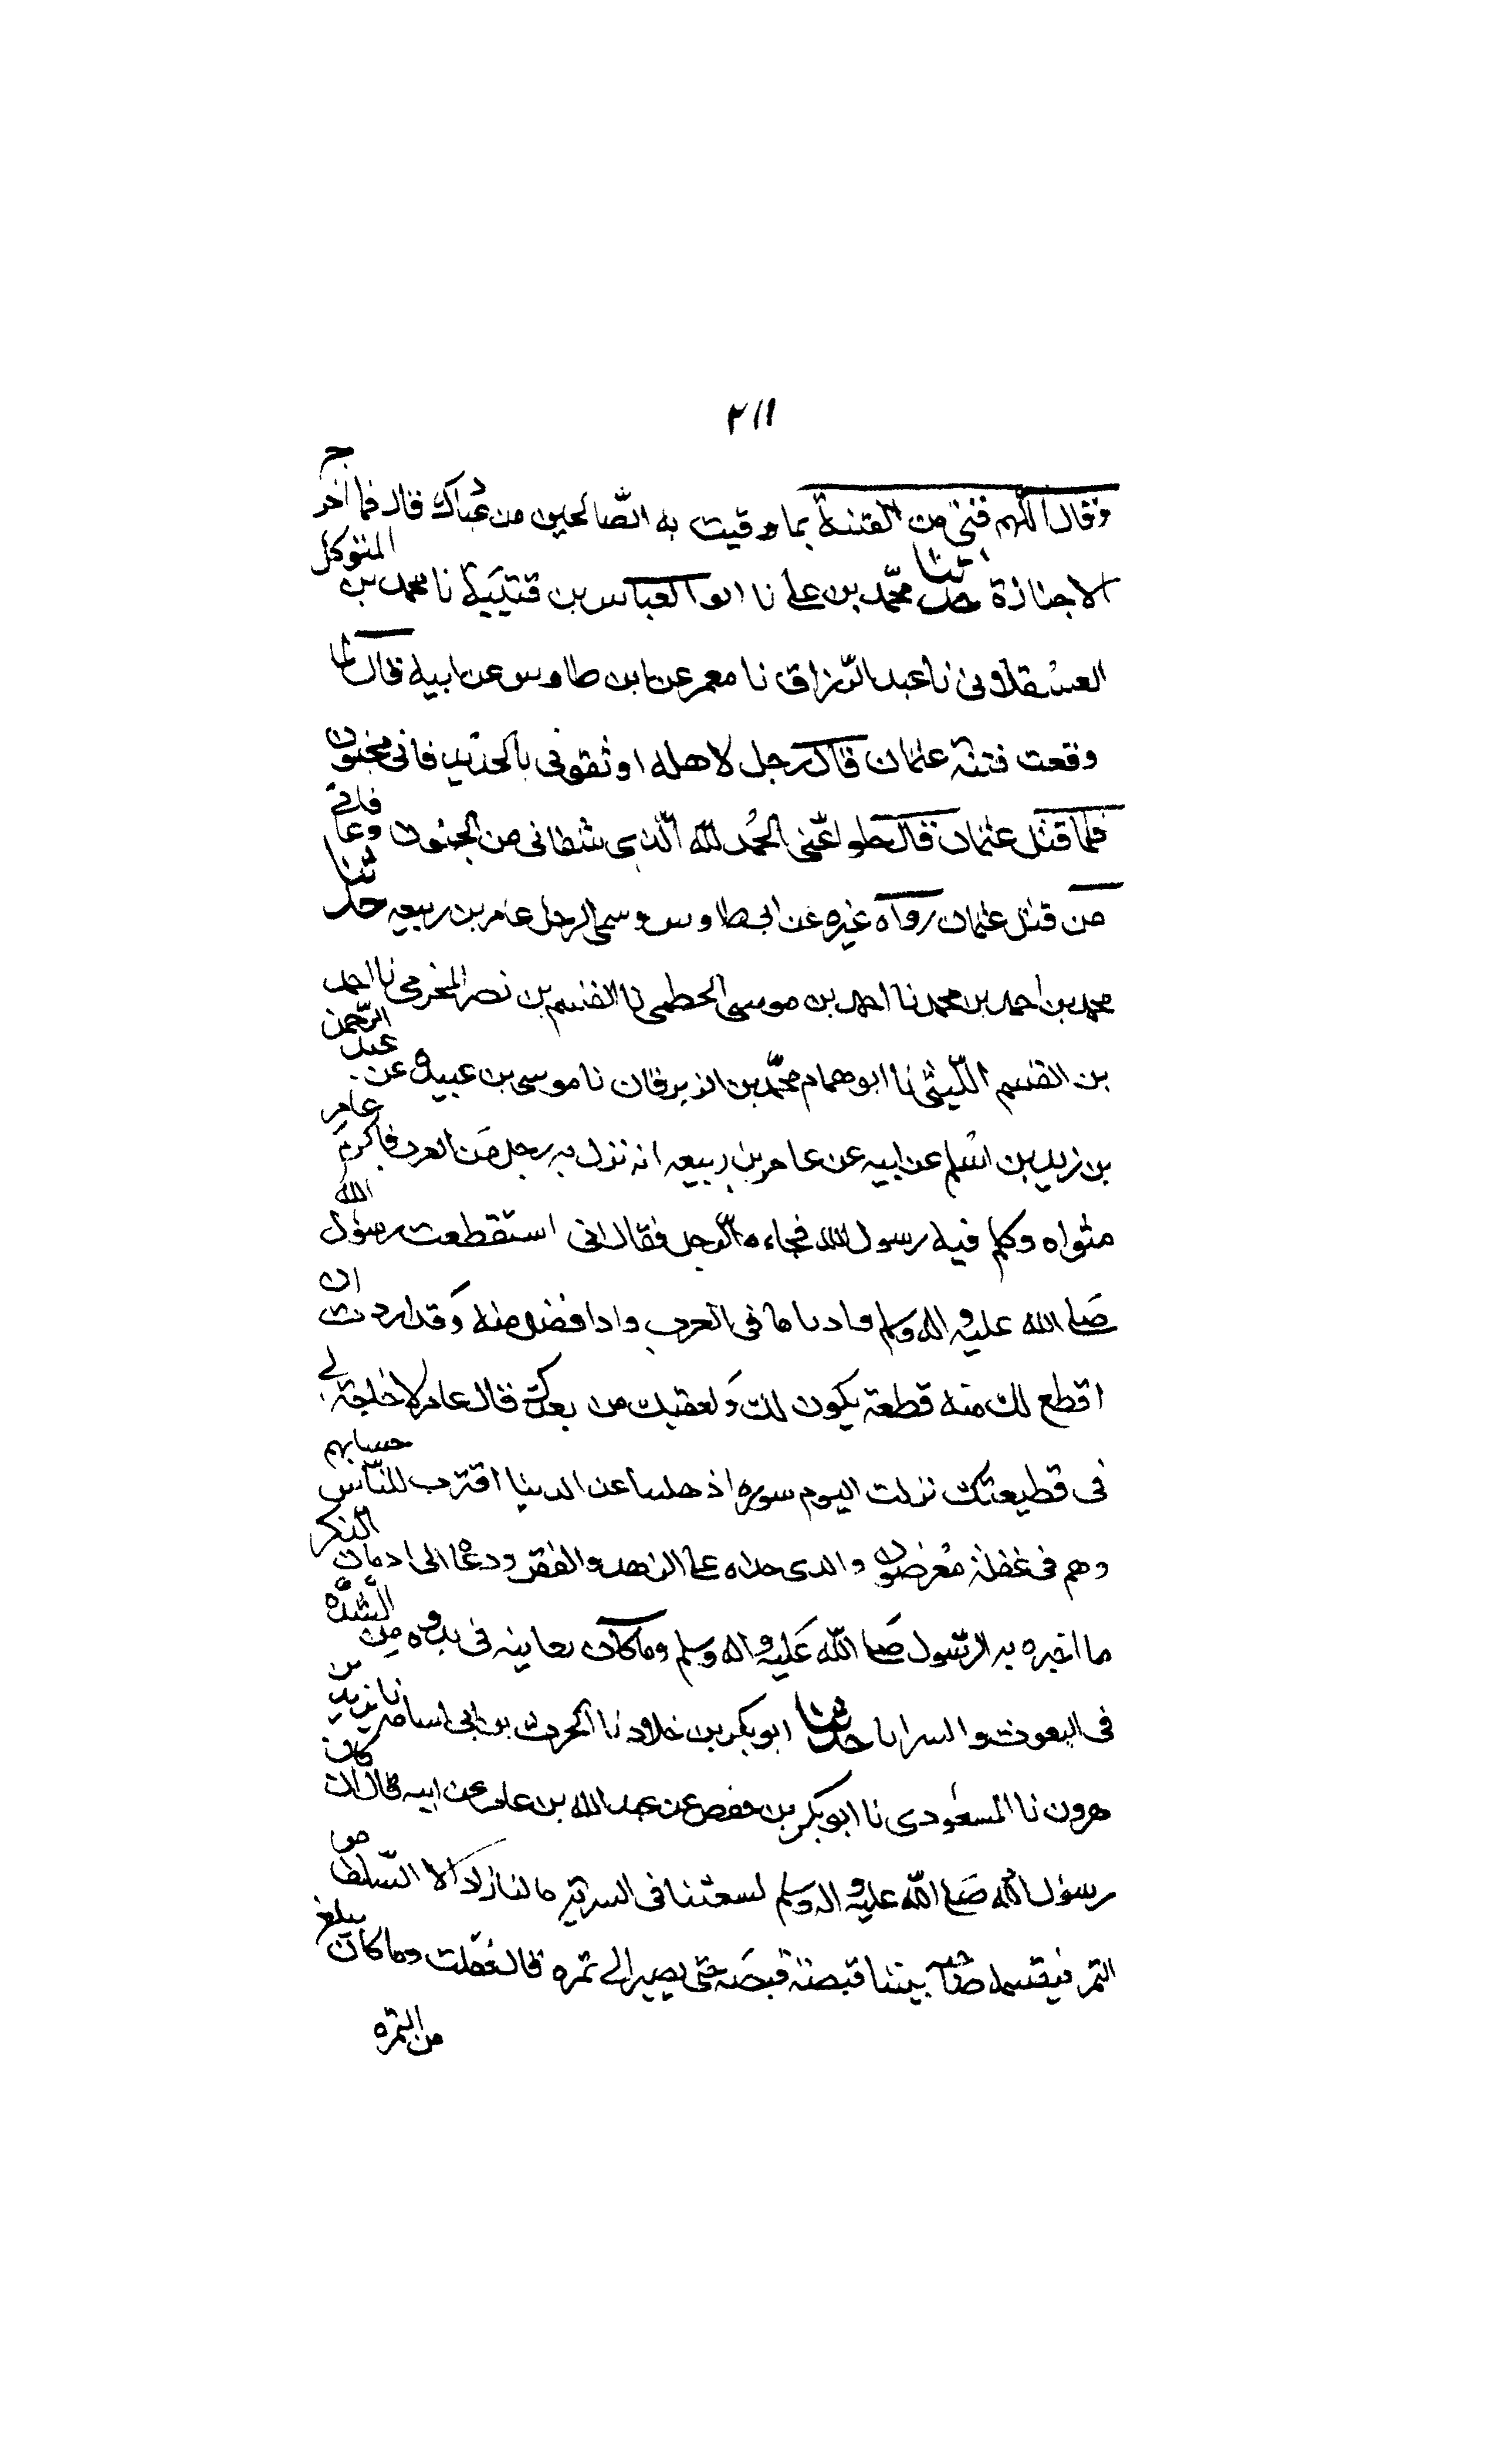 ٢١١
وقال اللهم قنى من الفتنة بما وقيت به الصالحين من عبادك قال فما اخرج
الا جنازة حدثنا محمد بن على نا ابو العباس بن قتيبة نا محمد بن المتوكل
العسقلانى نا عبد الرزاق نا معمر عن ابن طاوس عن ابيه قال لما
وقعت فتنة عثمان قال رجل لاهله اوثقونى بالحديد فانى مجنون
فلما قتل عثمان قال خلوا عنى الحمد لله الذى شفانى من الجنون وعافانى
من قتل عثمان رواه غيره عن ابن طاوس وسمى الرجل عامر بن ربيعه حدثنا
محمد بن احمد بن محمد نا احمد بن موسى الخطمى نا القسم بن نصر المخرمى نا احمد
بن القسم الليثى نا ابو همام محمد بن الزبرقان نا موسى بن عبيدة عن عبد الرحمن
بن زيد بن اسلم عن ابيه عن عامر بن ربيعه انه نزل به رجل من العرب فاكرم عامر
مثواه وكلم فيه رسول الله فجاءه الرجل فقال انى استقطعت رسول الله
صلى الله عليه واله وسلم واديا ما فى العرب وادا افضل منه وقد اردت ان
اقطع لك منه قطعة يكون لك ولعقبك من بعدك قال عامر لا حاجة لى
فى قطيعتك نزلت اليوم سورة اذهلتنا عن الدنيا اقترب للناس حسابهم
وهم فى غفلة معرضون والذى حداه على الزهد والفقر ودعاه الى ادمان الذكر
ما اخبره به الرسول صلى الله عليه واله وسلم وما كان يعاينه فى بدوه من الشدة
فى البعوث والسرايا حدثنا ابو بكر بن خلاد نا الحرث بن ابى اسامه نا يزيد بن
هرون نا المسعودى نا ابو بكر بن حفص عن عبد الله بن عامر عن ابيه قال ان كان
رسول الله صلى الله عليه واله وسلم ليبعثنا فى السرية ما لنا زاد الا السلف من
التمر فيقسمه صاحبه بيننا قبضة قبضة حتى يصير الى تمره قال فقلت وما كان يبلغ
من التمره